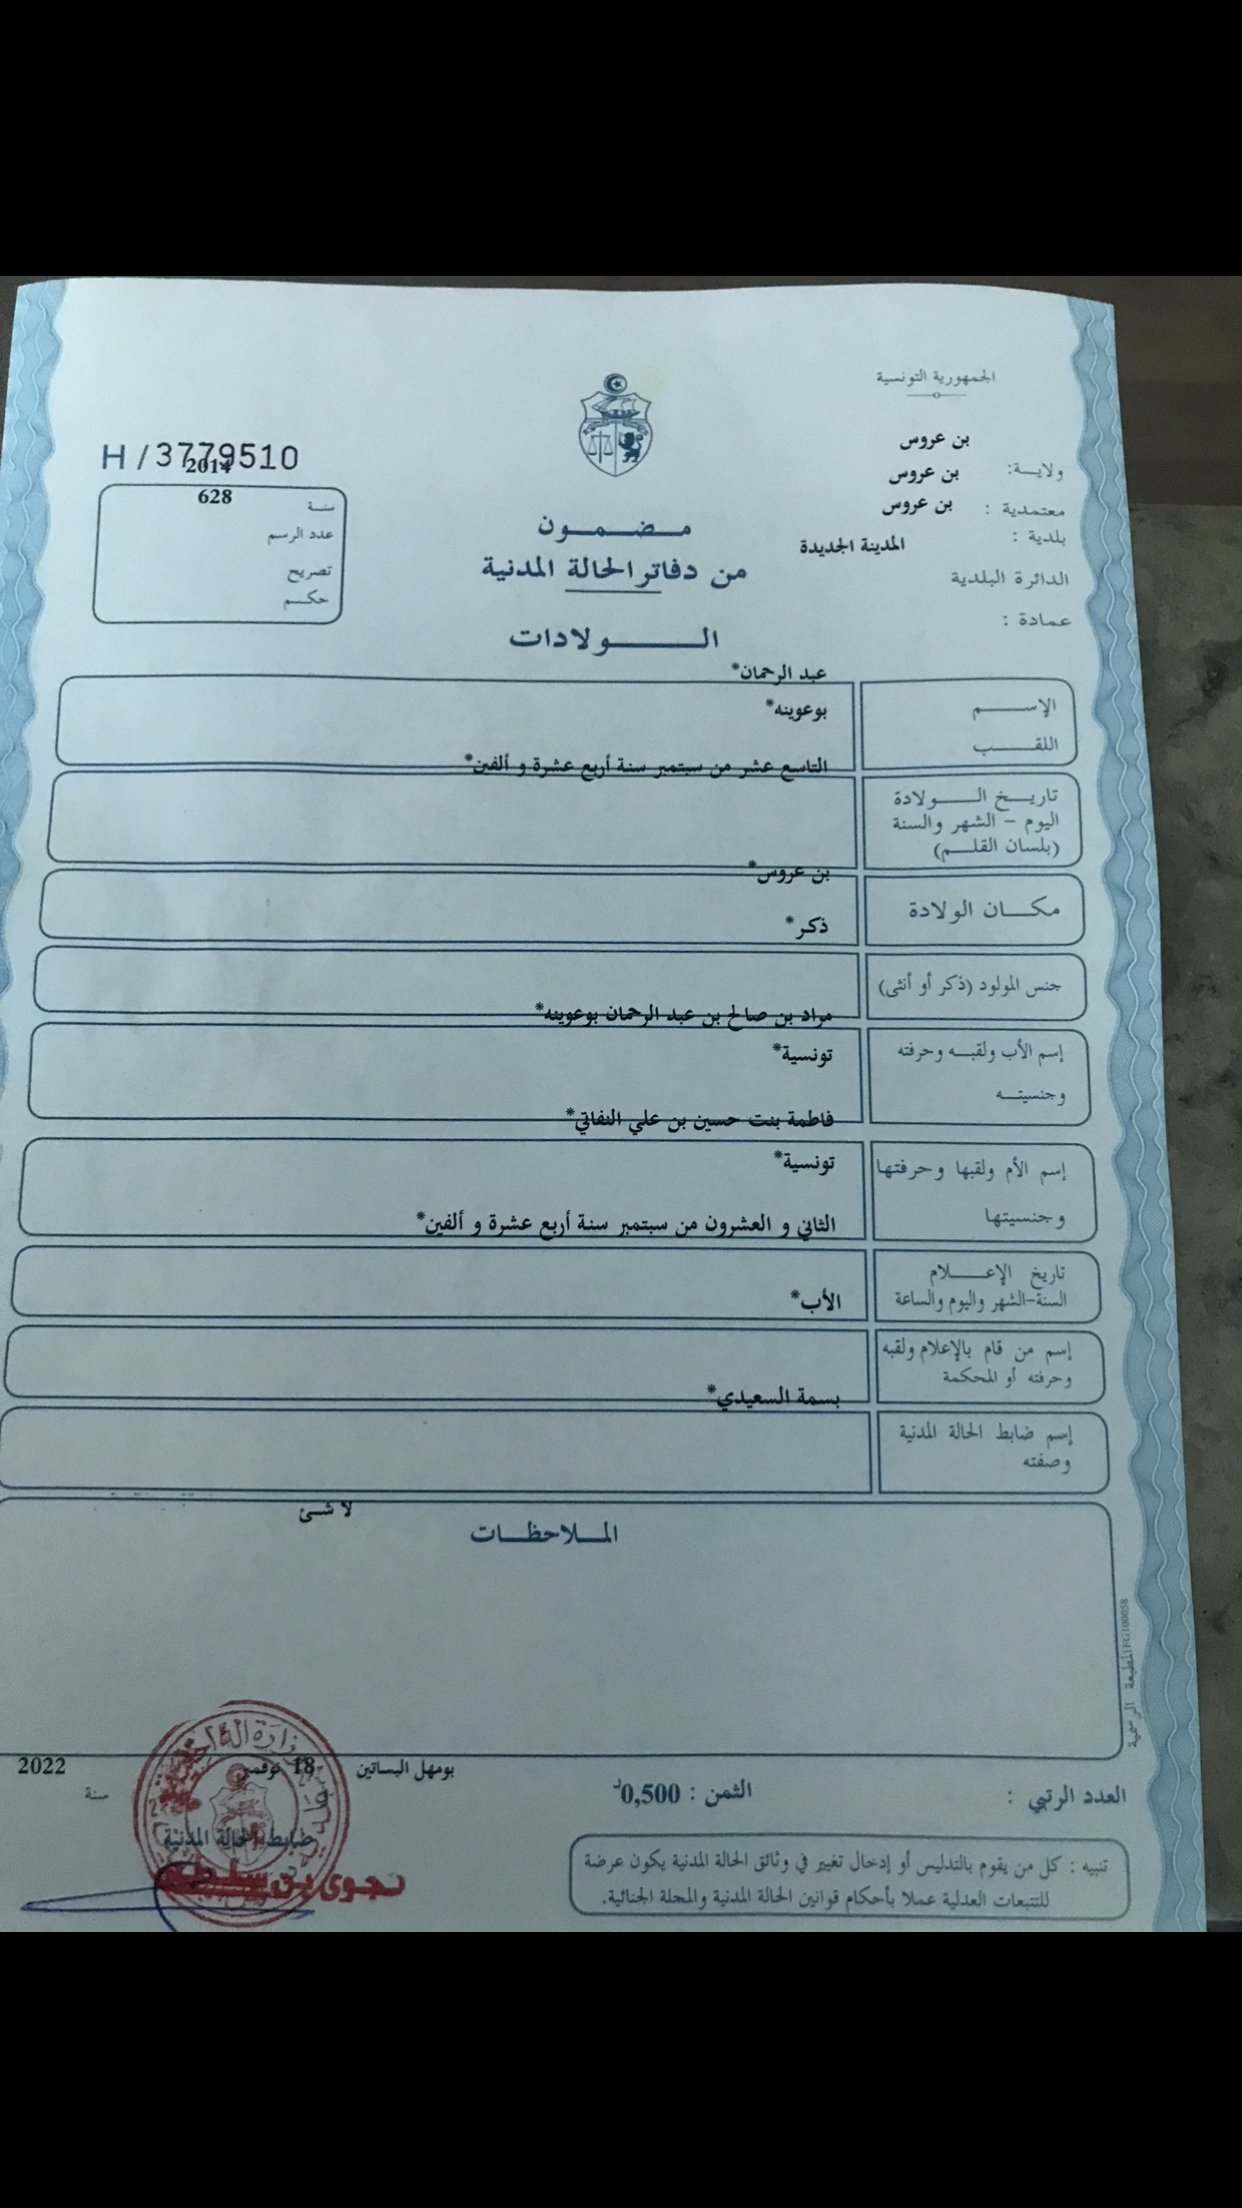 الجمهورية التونسية
بن عروس
ولاية: بن عروس
معتمدية : بن عروس
بلدية : المدينة الجديدة
الدائرة البلدية
عمادة :
H / 3779510
2014
628
سنة
عدد الرسم
تصريح
حكم
مضمون
من دفاتر الحالة المدنية
الولادات
عبد الرحمان*
الإسم
بوعوينه*
اللقب
التاسع عشر من سبتمبر سنة أربع عشرة و ألفين*
تاريخ الولادة
اليوم - الشهر والسنة
(بلسان القلم)
بن عروس*
مكان الولادة
ذكر*
جنس المولود (ذكر أو أنثى)
مراد بن صالح بن عبد الرحمان بوعوينه*
إسم الأب ولقبه وحرفته
تونسية*
وجنسيته
فاطمة بنت حسين بن علي النفاتي*
إسم الأم ولقبها وحرفتها
تونسية*
وجنسيتها
الثاني و العشرون من سبتمبر سنة أربع عشرة و ألفين*
تاريخ الإعلام
السنة-الشهر واليوم والساعة
الأب*
إسم من قام بالإعلام ولقبه
وحرفته أو المحكمة
بسمة السعيدي*
إسم ضابط الحالة المدنية
وصفته
لا شئ
الملاحظات
المطبعة الرسمية FG100058
بومهل البساتين 18 نوفمبر 2022
سنة
العدد الرتبي :
الثمن : 0,500د
ضابط الحالة المدنية
تنبيه : كل من يقوم بالتدليس أو إدخال تغيير في وثائق الحالة المدنية يكون عرضة
للتتبعات العدلية عملا بأحكام قوانين الحالة المدنية والمجلة الجنائية.